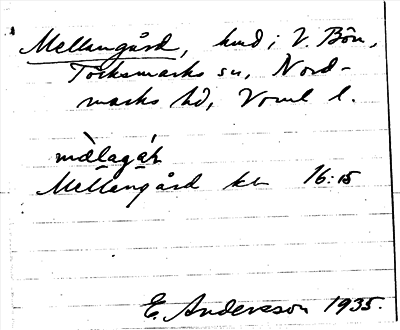 Mellangård, hmd i V. Bön,
Töcksmarks sn, Nord-
marks hd, Vrml l.
mèlagáḱ
Mellangård kb 16:15
E. Andersson 1935.